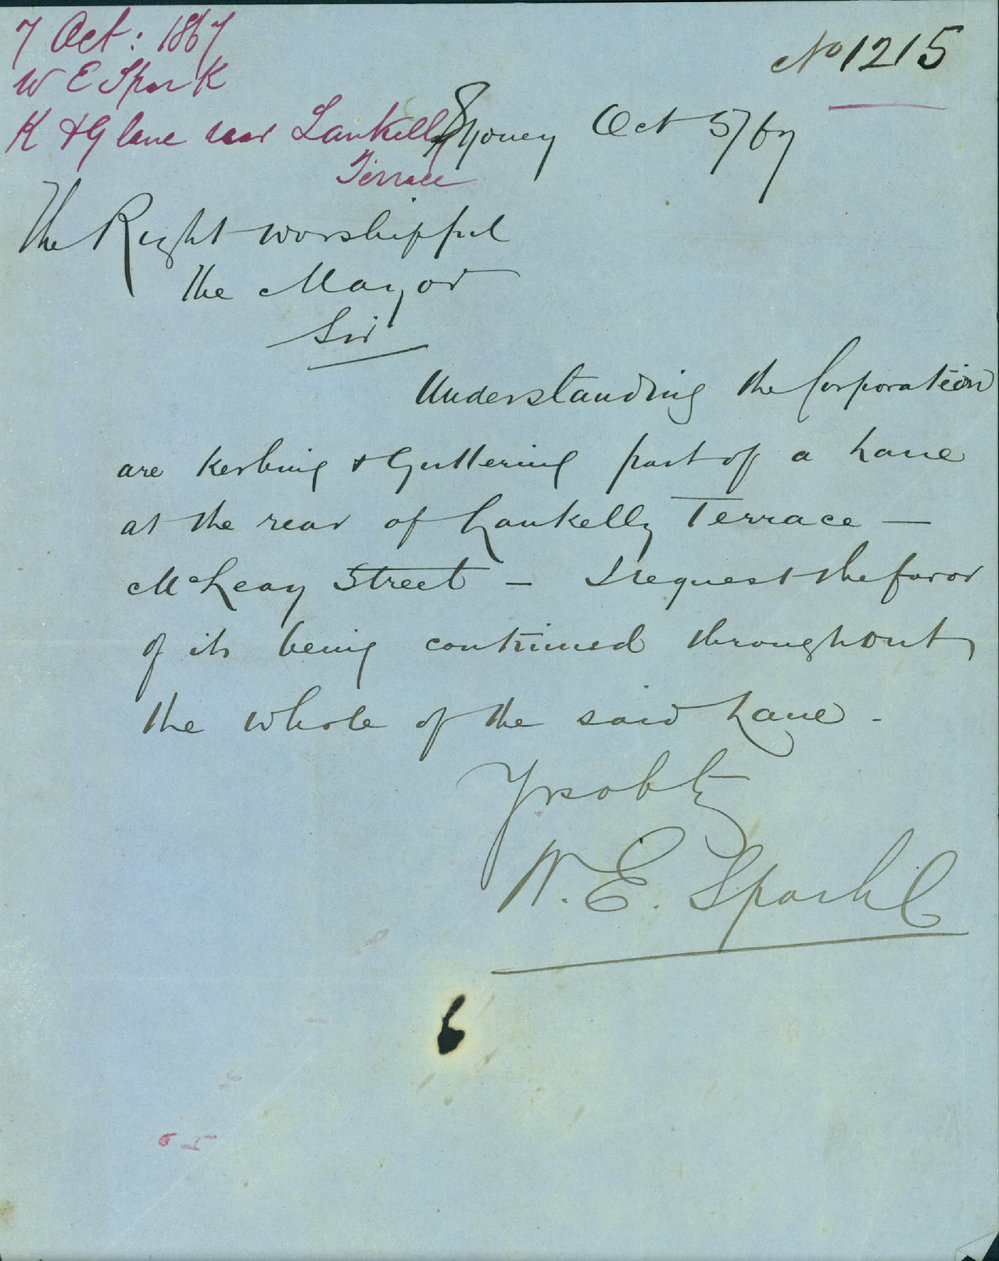 7 Oct: 1867
W E Spark
K & G lane rear Lankelly
Terrace
No 1215
Sydney Oct 5/67
The Right worshipful
the Mayor
Sir
Understanding the Corporation
are kerbing & Guttering part of a Lane
at the rear of Lankelly Terrace —
McLeay Street — I request the favor
of its being continued throughout
the whole of the said Lane -
Yrs obtly
W. E. Spark